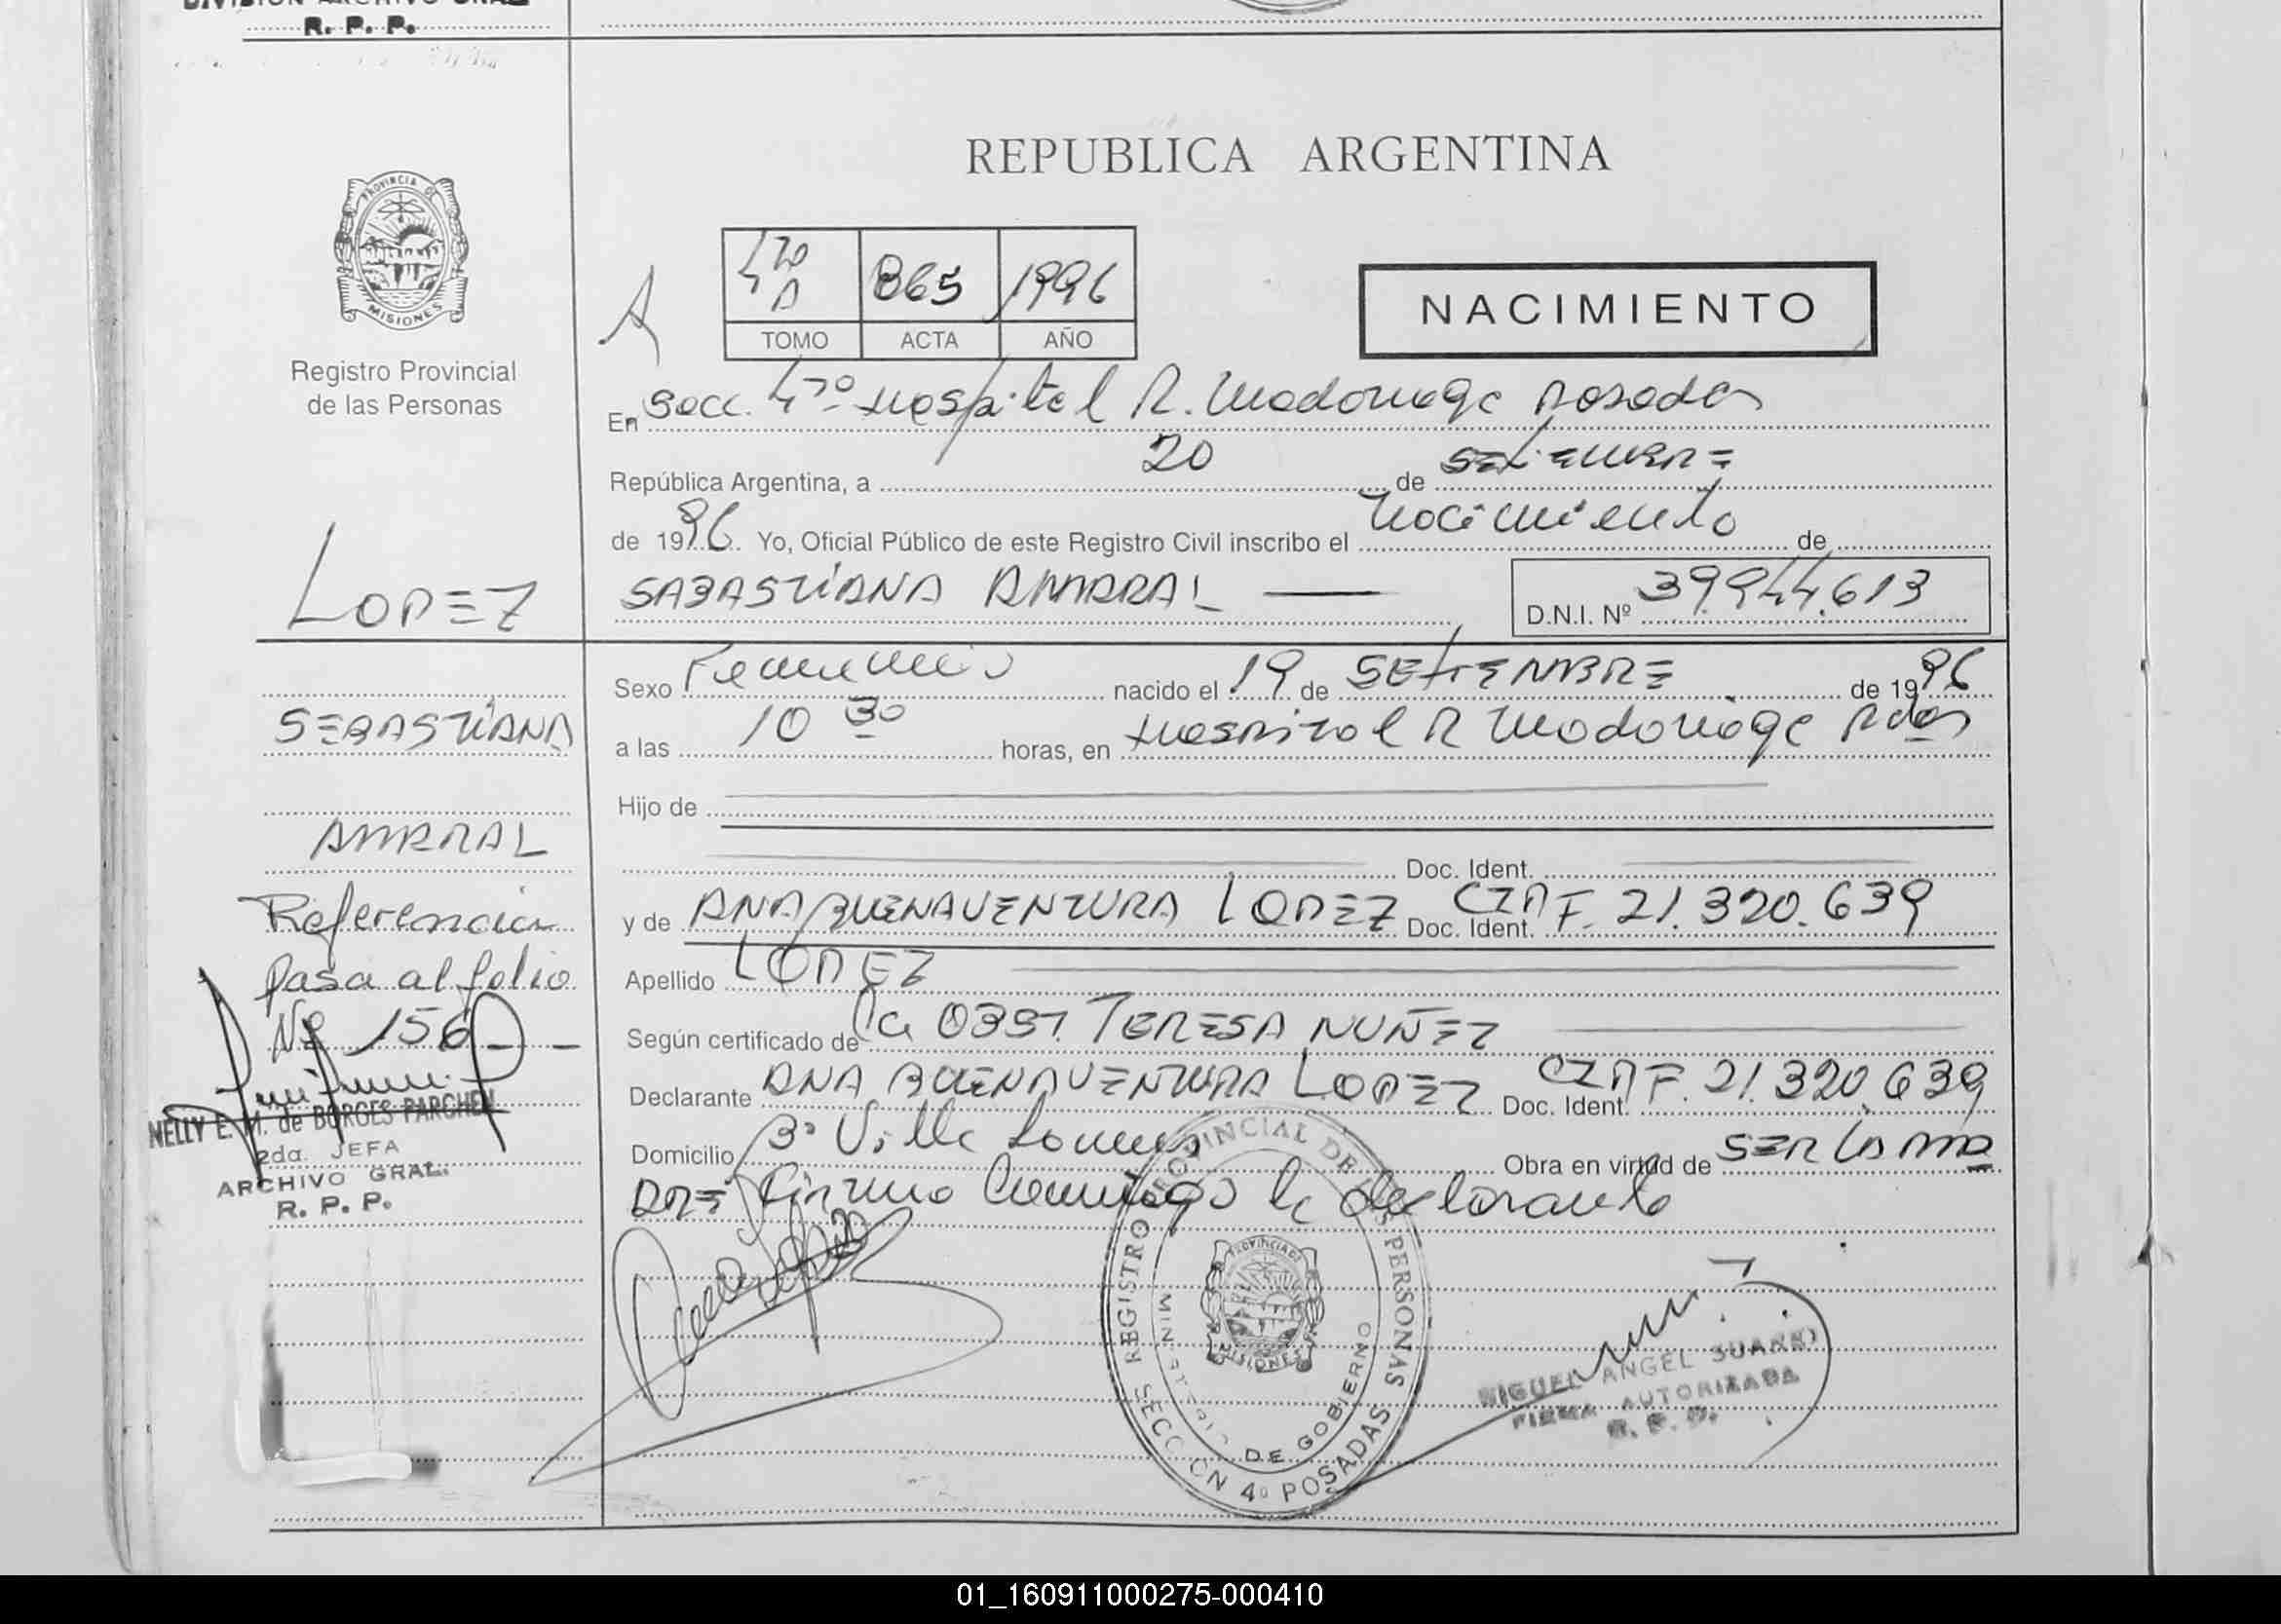 DIVISION ARCHIVO GRAL
R. P. P.
PROVINCIA DE
MISIONES
Registro Provincial
de las Personas
REPUBLICA ARGENTINA
A
4to A 865 1996
TOMO ACTA AÑO
NACIMIENTO
En Secc. 4to Hospital R. Madariaga Posadas
República Argentina, a 20 de SETIEMBRE
de 1996. Yo, Oficial Público de este Registro Civil inscribo el Nacimiento de
SABASTIANA AMARAL
D.N.I. Nº 39.944.613
LOPEZ
SEBASTIANA
AMARAL
Referencia
pasa al folio
Nº 156
NELLY E. M. de BORGES PARCHEN
2da. JEFA
ARCHIVO GRAL.
R. P. P.
Sexo Femenino nacido el 19 de SETIEMBRE de 1996
a las 10 30 horas, en Hospital R Madariaga Pdas
Hijo de
Doc. Ident.
y de ANA BUENAVENTURA LOPEZ Doc. Ident. F. 21.320.639
Apellido LOPEZ
Según certificado de TERESA NUÑEZ
Declarante ANA BUENAVENTURA LOPEZ Doc. Ident. F. 21.320.639
Domicilio Bº Villa Obra en virtud de SER LA MA
DRE Firma Conmigo la declarante
REGISTRO PROVINCIAL DE LAS PERSONAS
MINISTERIO DE GOBIERNO
PROVINCIA DE
MISIONES
SECCION 4º POSADAS
MIGUEL ANGEL SUAREZ
FIRMA AUTORIZADA
R. P. P.
01_160911000275-000410